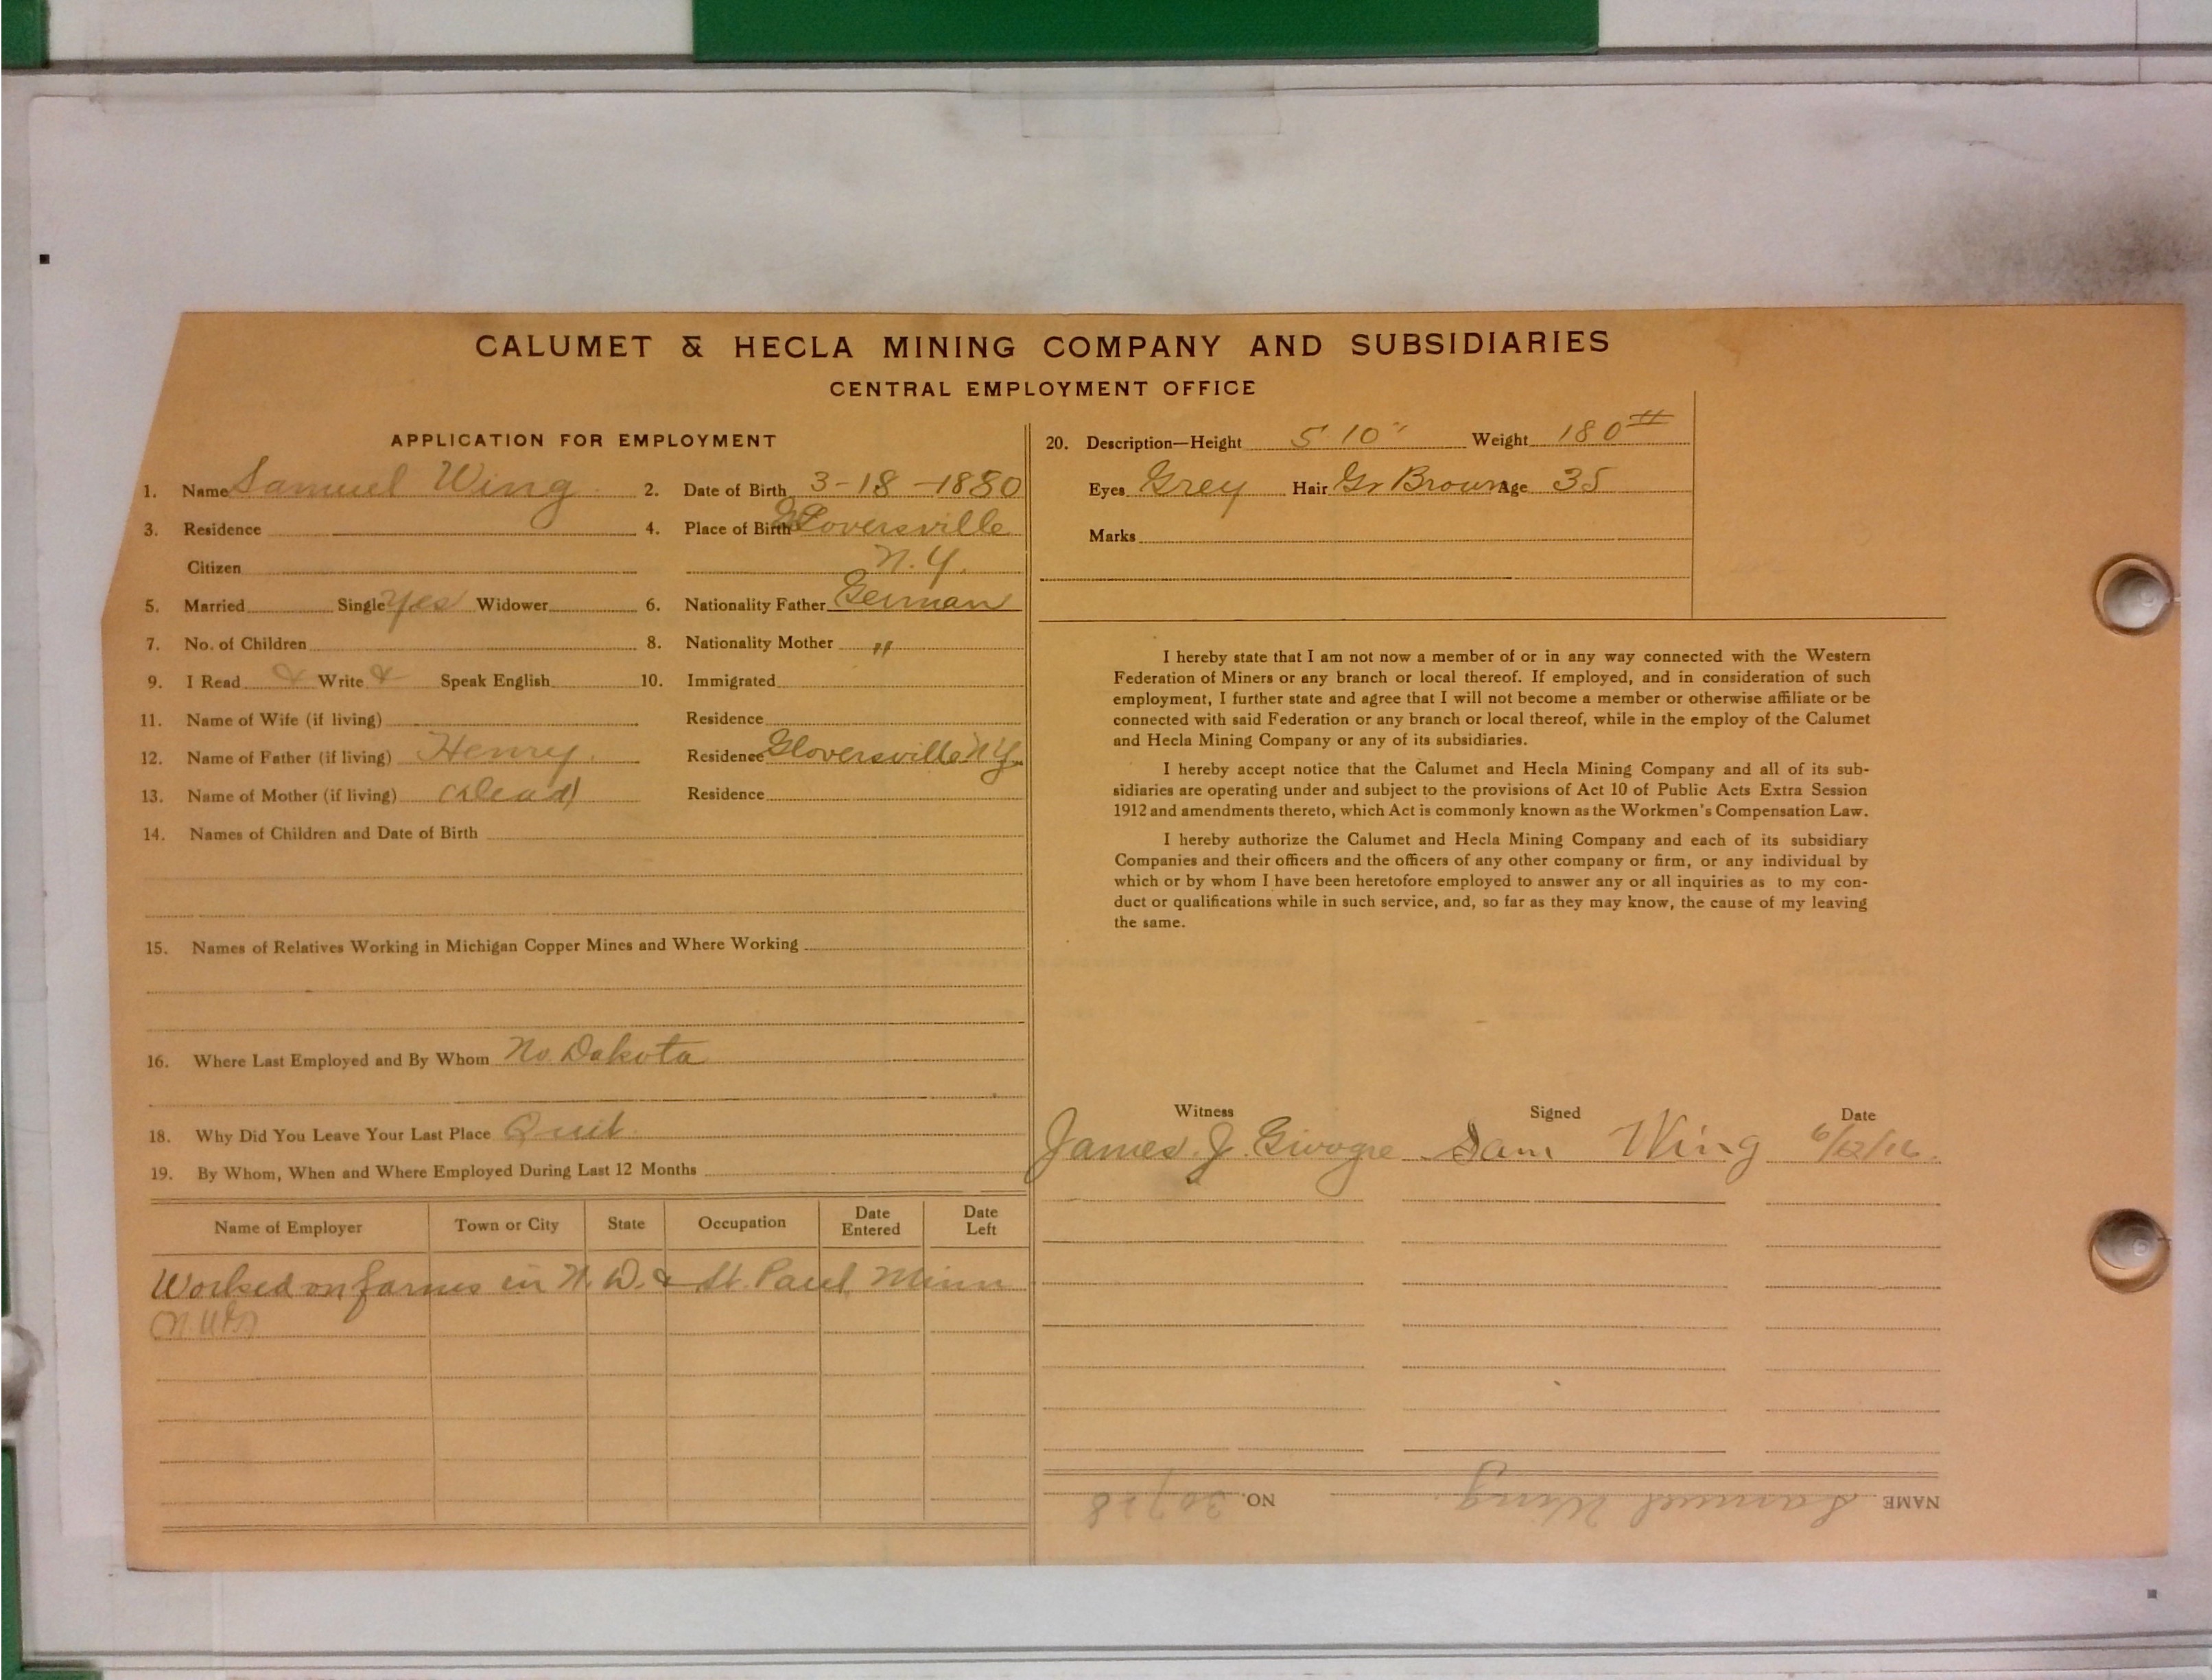 CALUMET & HECLA MINING COMPANY AND SUBSIDIARIES
CENTRAL EMPLOYMENT OFFICE
APPLICATION FOR EMPLOYMENT
1. Name Samuel Wing 2. Date of Birth 3-18-1880
3. Residence 4. Place of Birth Gloversville
Citizen N.Y.
5. Married Single Yes Widower 6. Nationality Father German
7. No. of Children 8. Nationality Mother "
9. I Read Write Speak English 10. Immigrated
11. Name of Wife (if living) Residence
12. Name of Father (if living) Henry. Residence Gloversville N.Y.
13. Name of Mother (if living) (dead) Residence
14. Names of Children and Date of Birth
15. Names of Relatives Working in Michigan Copper Mines and Where Working
16. Where Last Employed and By Whom No. Dakota
18. Why Did You Leave Your Last Place Quit
19. By Whom, When and Where Employed During Last 12 Months
Name of Employer Town or City State Occupation Date Entered Date Left
Worked on farms in N. D. & St. Paul Minn
20. Description—Height 5' 10" Weight 180#
Eyes Grey Hair Gr Brown Age 35
Marks
I hereby state that I am not now a member of or in any way connected with the Western
Federation of Miners or any branch or local thereof. If employed, and in consideration of such
employment, I further state and agree that I will not become a member or otherwise affiliate or be
connected with said Federation or any branch or local thereof, while in the employ of the Calumet
and Hecla Mining Company or any of its subsidiaries.
I hereby accept notice that the Calumet and Hecla Mining Company and all of its sub-
sidiaries are operating under and subject to the provisions of Act 10 of Public Acts Extra Session
1912 and amendments thereto, which Act is commonly known as the Workmen's Compensation Law.
I hereby authorize the Calumet and Hecla Mining Company and each of its subsidiary
Companies and their officers and the officers of any other company or firm, or any individual by
which or by whom I have been heretofore employed to answer any or all inquiries as to my con-
duct or qualifications while in such service, and, so far as they may know, the cause of my leaving
the same.
Witness Signed Date
James J. Sam Wing 6/12/16.
NAME Samuel Wing. NO.